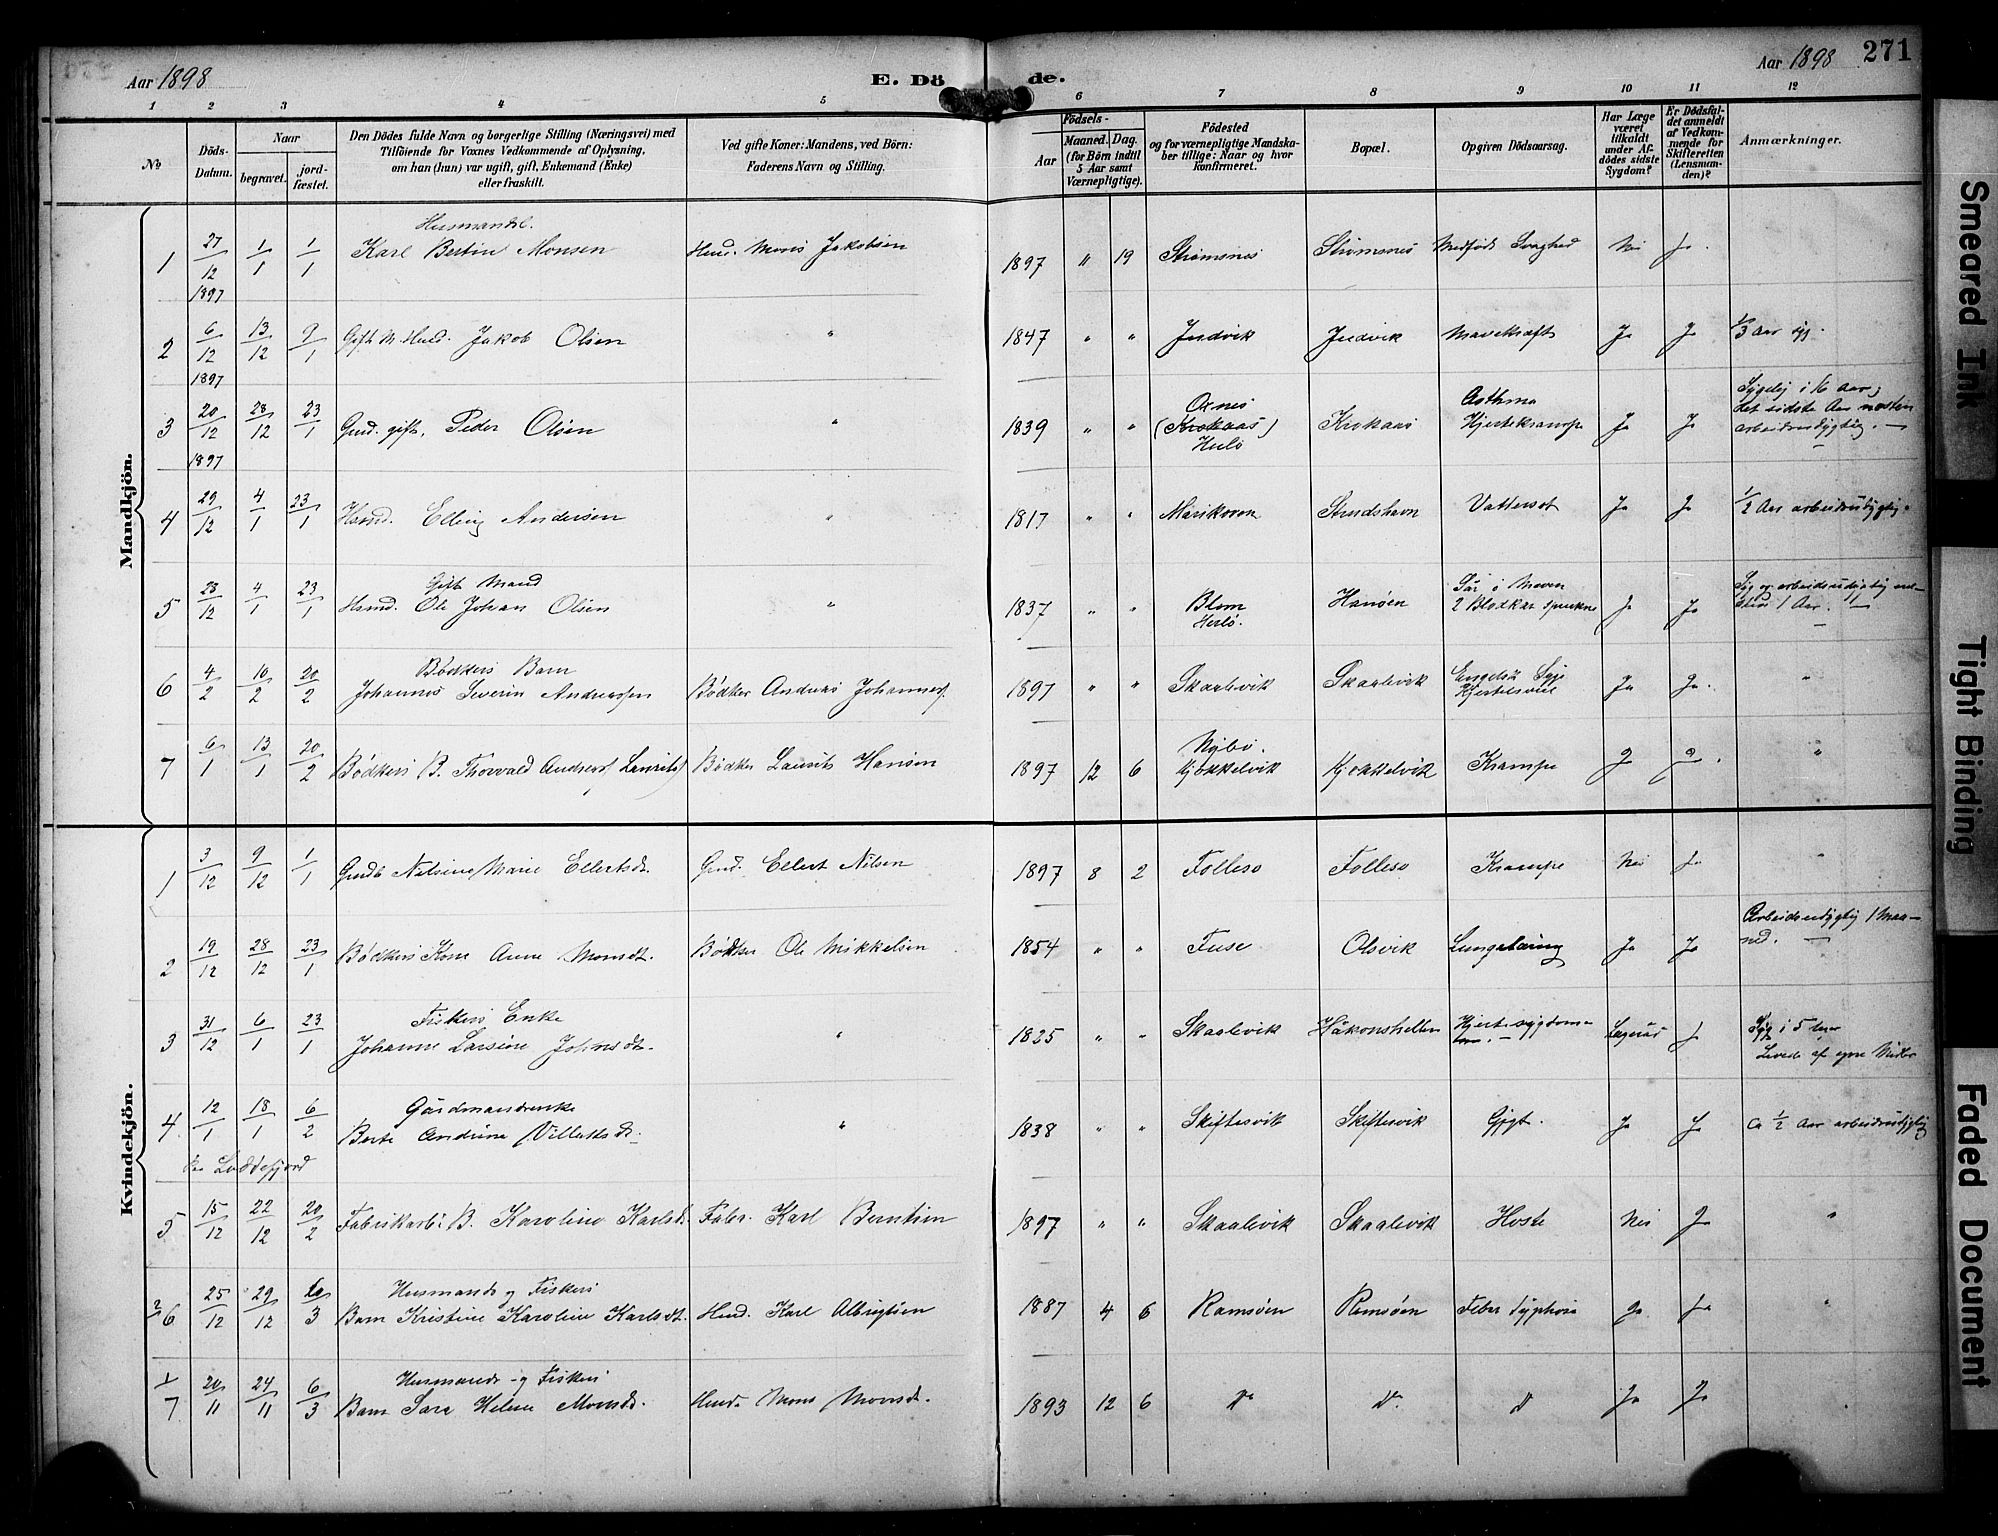 Aar 1898
E. Dö de.
Aar 1898
271
1 2 3 4 5 6 7 8 9 10 11 12
No
Döds-Datum.
Naar
begravet.
jord-fæstet.
Den Dödes fulde Navn og borgerlige Stilling (Næringsvei) med
Tilföiende for Voxnes Vedkommende af Oplysning,
om han (hun) var ugift, gift, Enkemand (Enke)
eller fraskilt.
Ved gifte Koner: Mandens, ved Börn:
Faderens Navn og Stilling.
Födsels-
Aar
Maaned. Dag.
(for Börn indtil
5 Aar samt
Værnepligtige).
Födested
og for værnepligtige Mandska-
ber tillige: Naar og hvor
konfirmeret.
Bopæl.
Opgiven Dödsaarsag.
Har Læge
været
tilkaldt
under Af-
dødes sidste
Sygdom?
Er Dödsfal-
det anmeldt
af Vedkom-
mende for
Skifteretten
(Lensman-
den)?
Anmærkninger.
Mandkjön.
Husmandsb.
1 27/12 1897 1/1 1/1 Karl Bertin Monsen Husd. Mons Jakobsen 1897 " 19 Strömsnes Strömsnes Medfödt Svaghed Nei Ja.
2 6/12 1897 13/12 9/1 Gift M. Husd. Jakob Olsen " 1847 " " Indvik Indvik Mavekræft Ja Ja 1/3 Aar syg.
3 20/12 1897 28/12 23/1 Grd. gift. Peder Olsen " 1839 " " Oxnes (Krokaas) Herlö Krokaas Asthma Hjertekrampe Ja Ja Sygelig i 16 Aar; det sidste Aar næsten arbeidsudygtig. —
4 29/12 4/1 23/1 Husmd. Elling Andersen " 1817 " " Marikoven Strudshavn Vattersot Ja Ja 1/2 Aar arbeidsudygtig.
Gift Mand
5 23/12 4/1 23/1 Husmd. Ole Johan Olsen " 1837 " " Blom Herlö. Hanöen Sår i Maven 2 Blodkar sprukne Ja Ja Syg og arbeidsudygtig 1 Aar. —
Bödkers Barn
6 4/2 10/2 20/2 Johannes Severin Andreassen Bödker Andreas Johannes. 1897 " " Skaalevik Skaalevik Engelsk Syge Ja Ja. "
7 6/1 13/1 20/2 Bödkers B. Thorvald Andreas Laurits) Bödker Laurits Hansen 1897 12 6 Nybö. Kjökkelvik Kjökkelvik Krampe "
Kvindekjön.
1 3/12 9/12 1/1 Grdb Nilsine Marie Ellertsdr. Grd. Ellert Nilsen 1897 8 2 Follesö Follesö Krampe Nei Ja "
2 19/12 28/12 23/1 Bödkers Kone Anne Monsdt. Bödker Ole Mikkelsen 1854 " " Fuse Olsvik Lungetæring Ja Ja Arbeidsudygtig 1 Maaned. —
Fiskers Enke
3 31/12 6/1 23/1 Johanne Larsine Johnsdr. " 1825 " " Skaalevik Håkonshellen Hjertesygdom — Syg i 5 Levede af egne Midler
Gårdmandsenke
4 12/1 18/1 6/2 Berte Andrine Villattsdr. " 1838 " " Skiftesvik Skiftesvik Gigt. Ja Ja Ca 1/2 Aar arbeidsudygtig
Loddefjord
5 15/12 22/12 20/2 Fabrikarb. B. Karoline Karlsd. Fabr. Karl Berntsen 1897 " " Skaalevik Skaalevik Hoste Nei Ja "
Husmands og Fiskers
2/6 25/12 29/12 6/3 Barn Kristine Karoline Karlsdt. Husd. Karl Albrigtsen 1887 4 6 Ramsöen Ramsöen Feber Typhoid Ja Ja "
Husmands og Fiskers
1/7 20/11 24/11 6/3 Barn Sara Helene Monsdr. Husd. Mons Monsd. 1893 12 6 Do Do Do Ja Ja
Smeared Ink
Tight Binding
Faded Document